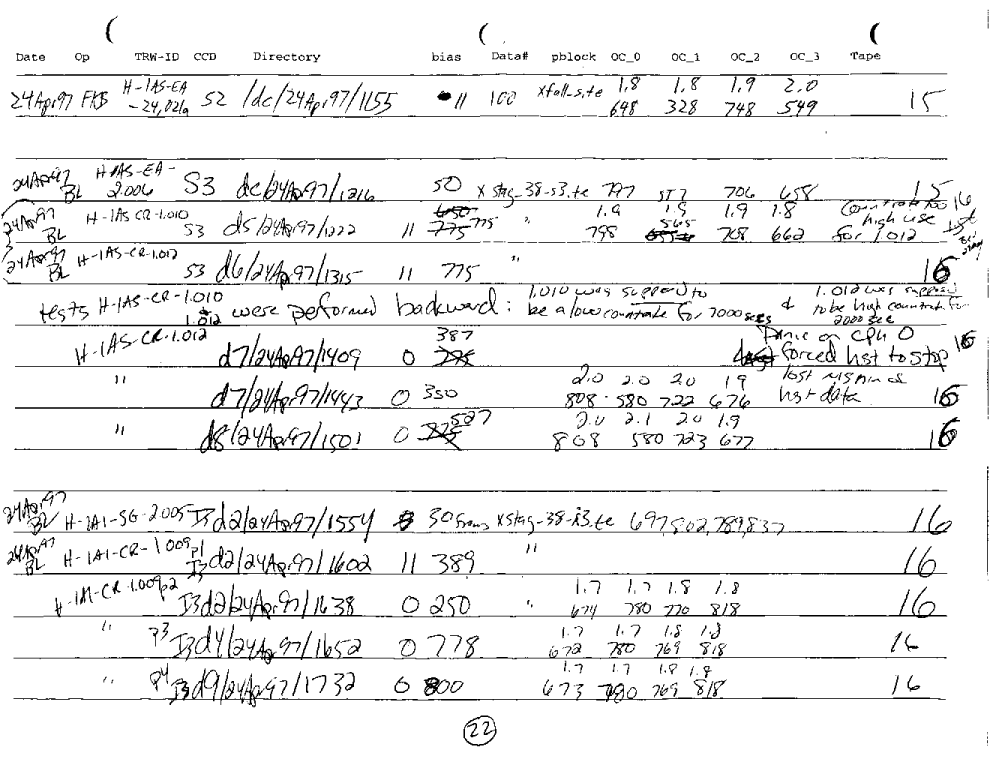 Date Op TRW-ID CCD Directory bias Data# pblock OC_0 OC_1 OC_2 OC_3 Tape
24Apr97 FKB H-IAS-EA-24,02/a S2 /dc/24Apr97/1155 11 100 xfall_s.te 1.8 1.8 1.9 2.0
698 328 748 549 15
24Apr97 BL H-IAS-EA-2.006 S3 dc/24Apr97/1216 50 xstag-38-s3.te 797 577 706 658 15
24Apr97 BL H-IAS CR-1.010 S3 d5/24Apr97/1222 11 775 " 1.9 1.9 1.9 1.8 countrate too high use for 1.012
798 565 708 662
24Apr97 BL H-IAS-CR-1.012 S3 d6/24Apr97/1315 11 775 " 16
tests H-IAS-CR-1.010 & 1.012 were performed backward: 1.010 was supposed to be a low countrate for 7000 secs & 1.012 was supposed to be high countrate for 2000 sec
H-IAS-CR-1.012 d7/24Apr97/1409 0 387 Panic on cpu 0 forced hst to stop 16
" d7/24Apr97/1443 0 350 2.0 2.0 2.0 1.9 lost hst data 16
808 580 722 676
" d8/24Apr97/1501 0 527 2.0 2.1 2.0 1.9 16
808 580 723 677
24Apr97 BL H-IAI-SG-2.005 I3 d2/24Apr97/1554 30 frams xstag-38-i3.te 697,802,789,837 16
24Apr97 BL H-IAI-CR-1.009 p1 I3 d2/24Apr97/1602 11 389 " 16
H-IAI-CR-1.009 p2 I3 d2/24Apr97/1638 0 250 " 1.7 1.7 1.8 1.8 16
674 780 770 818
" p3 I3 d4/24Apr97/1652 0 778 1.7 1.7 1.8 1.8 16
672 780 769 818
" p4 I3 d9/24Apr97/1732 0 800 1.7 1.7 1.8 1.8 16
673 780 769 818
22